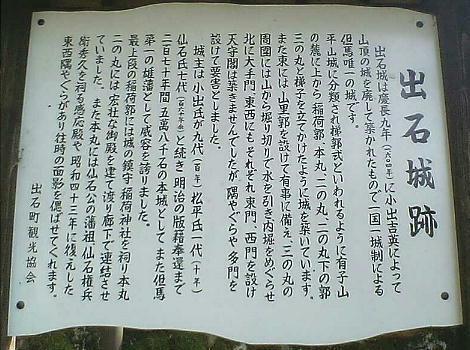 出石城跡
出石城は慶長九年(一六〇四年)に小出吉英によって
山頂の城を廃して築かれたもので一国一城制による
但馬唯一の城です。
平山城に分類され梯郭式といわれるように有子山
の麓に上から稲荷郭、本丸、二の丸、二の丸下の郭
三の丸と梯子を立てかけたように城を築いています。
また東には山里郭を設けて有事に備え、三の丸の
周囲には山から堀り切りで水を引き内堀をめぐらせ
北に大手門、東西にもそれぞれ東門、西門を設け
天守閣は築きませんでしたが隅やぐらや多門を
設けて要害としました。
城主は小出氏が九代(百年)松平氏一代(十年)
仙石氏七代(百六十年)と続き明治の版籍奉還まで
二百七十年間五萬八千石の本城として また但馬
第一の雄藩として威容を誇りました。
最上段の稲荷郭には城の鎮守稲荷神社を祠り本丸
二の丸には宏壮な御殿を建て渡り廊下で連結させ
ていました。また本丸には仙石公の藩祖仙石権兵
衛秀久を祠る感応殿や昭和四十三年に復元した
東西隅やぐらがあり往時の面影を偲ばせてくれます。
出石町観光協会